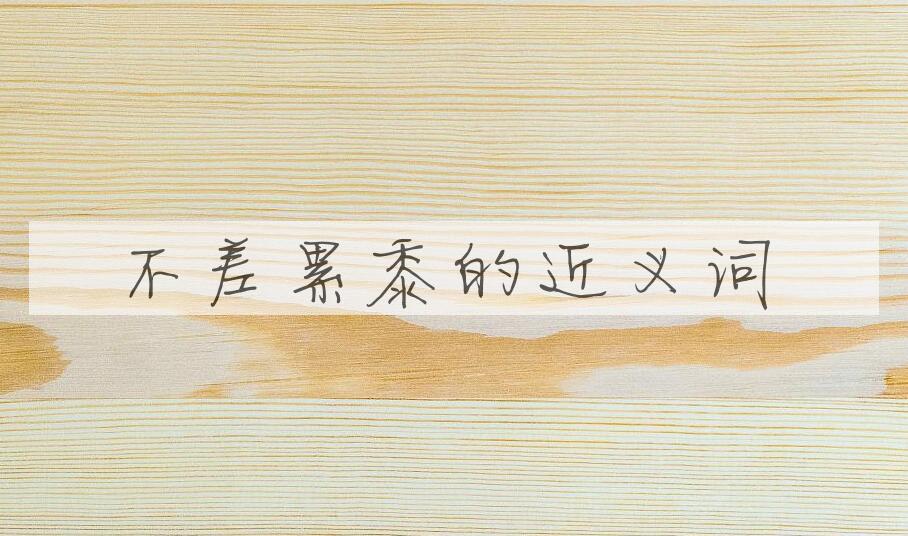 不差累黍的近义词